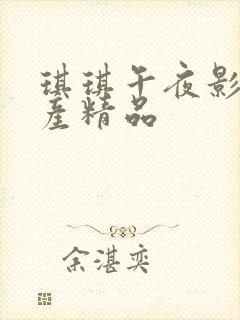 琪琪午夜影
产精品
余湛奕